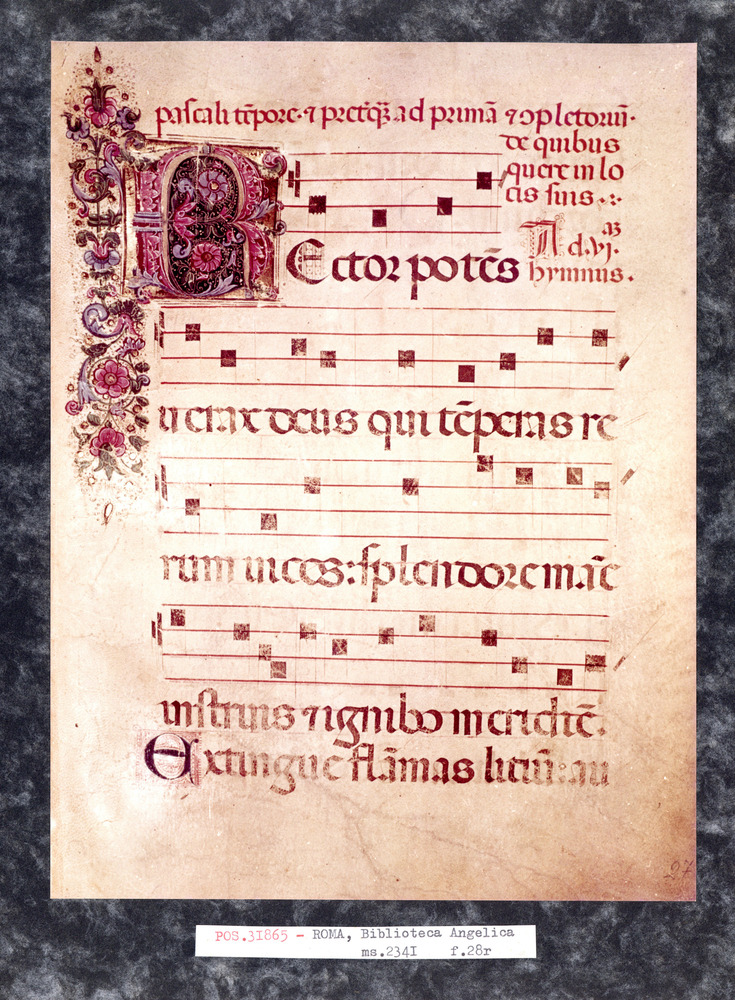 pascali tēpore· ⁊ pret̄q̄ ad primā ⁊ ↄpletoriū·
de quibus
quere in lo
cis suis ·:·
Ad .vj.
hymnus.
REctor potēs
uerax deus qui tēperas re
rum uices: splendore māe
instruis ⁊ ignibꝰ meridiē.
Extingue flāmas litiū: au
27
POS.31865 - ROMA, Biblioteca Angelica
ms.2341 f.28r